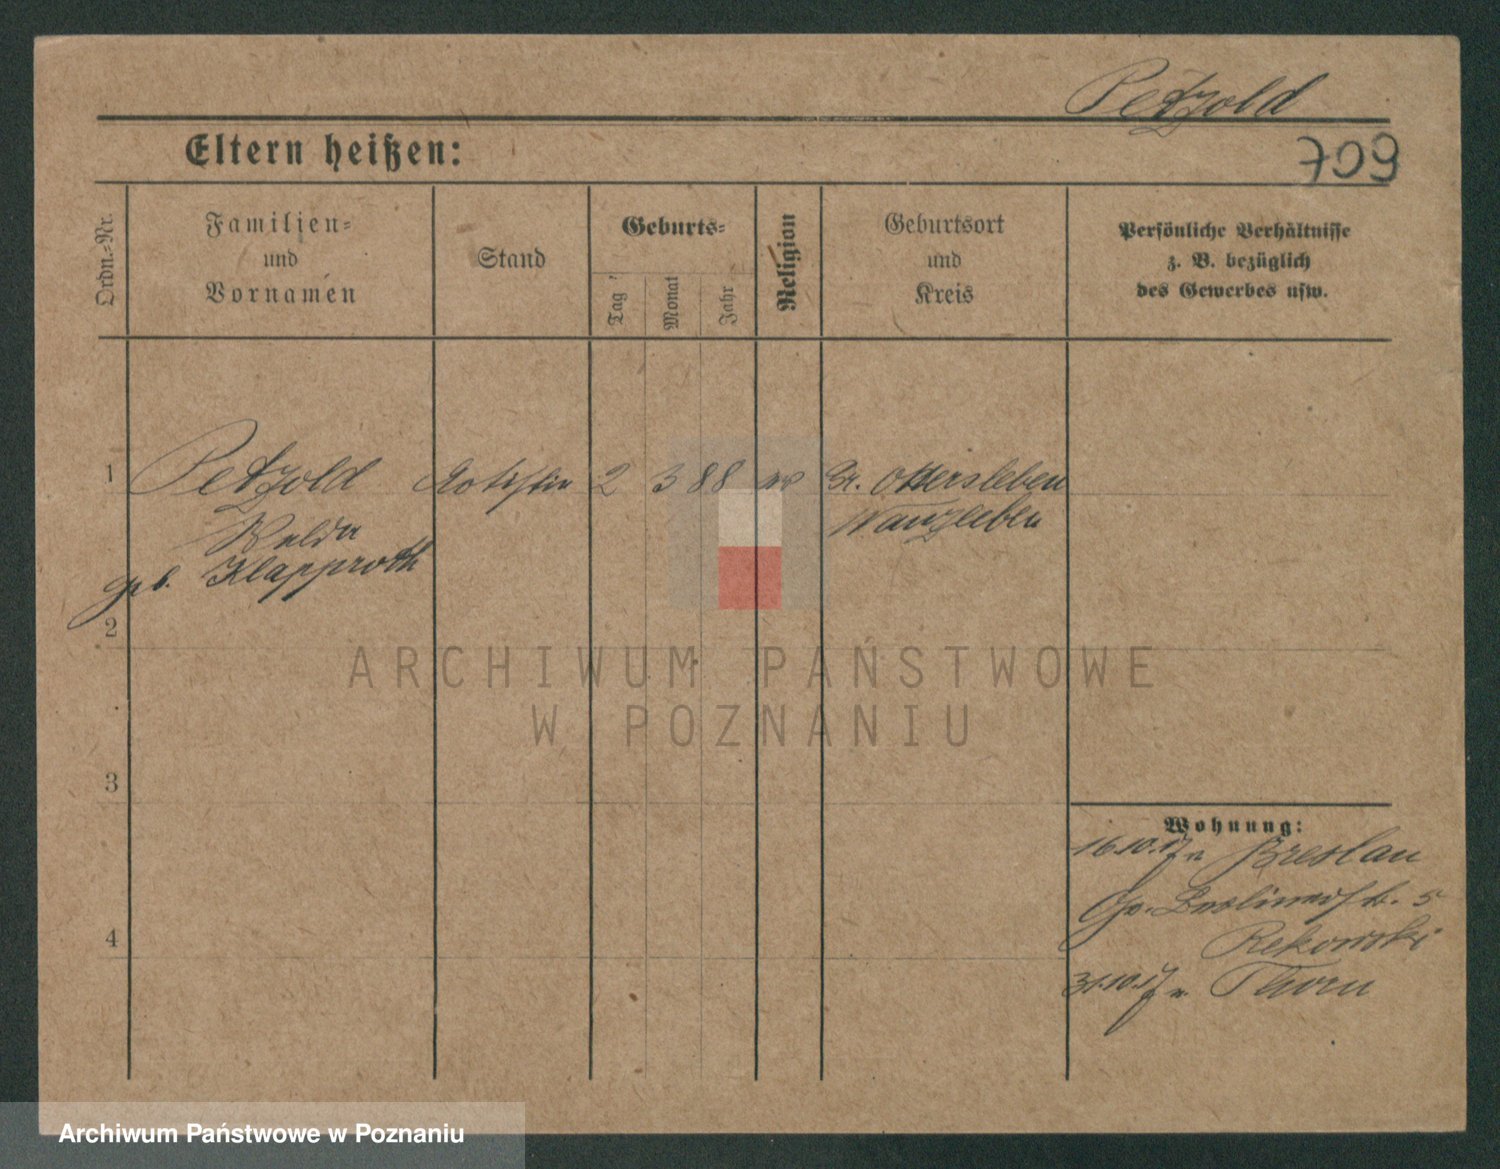 Petzold
709
Eltern heißen:
Ordn.-Nr.
Familien-
und
Vornamen
Stand
Geburts-
Tag
Monat
Jahr
Religion
Geburtsort
und
Kreis
Persönliche Verhältnisse
z. B. bezüglich
des Gewerbes usw.
1
Petzold
Artistin
2
3
88
ev
Gr. Ottersleben
Wanzleben
geb. Klapproth
2
3
4
Wohnung:
16.10.17 v. Breslau
Gr. Berlinerstr. 5
Rekowski
31.10.17 n. Thorn
ARCHIWUM PAŃSTWOWE
W POZNANIU
Archiwum Państwowe w Poznaniu